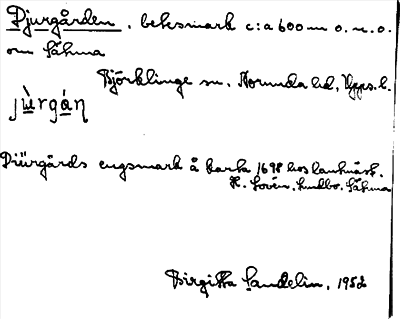 Djurgården, betesmark c:a 600 m o.n.o.
om Såhma
Björklinge sn, Norunda hd, Upps. l.
jùrgáη
Diürgårds engsmark å karta 1698 hos lantmäst.
H. Lovén, Lundbo, Såhma
Birgitta Sandelin, 1952